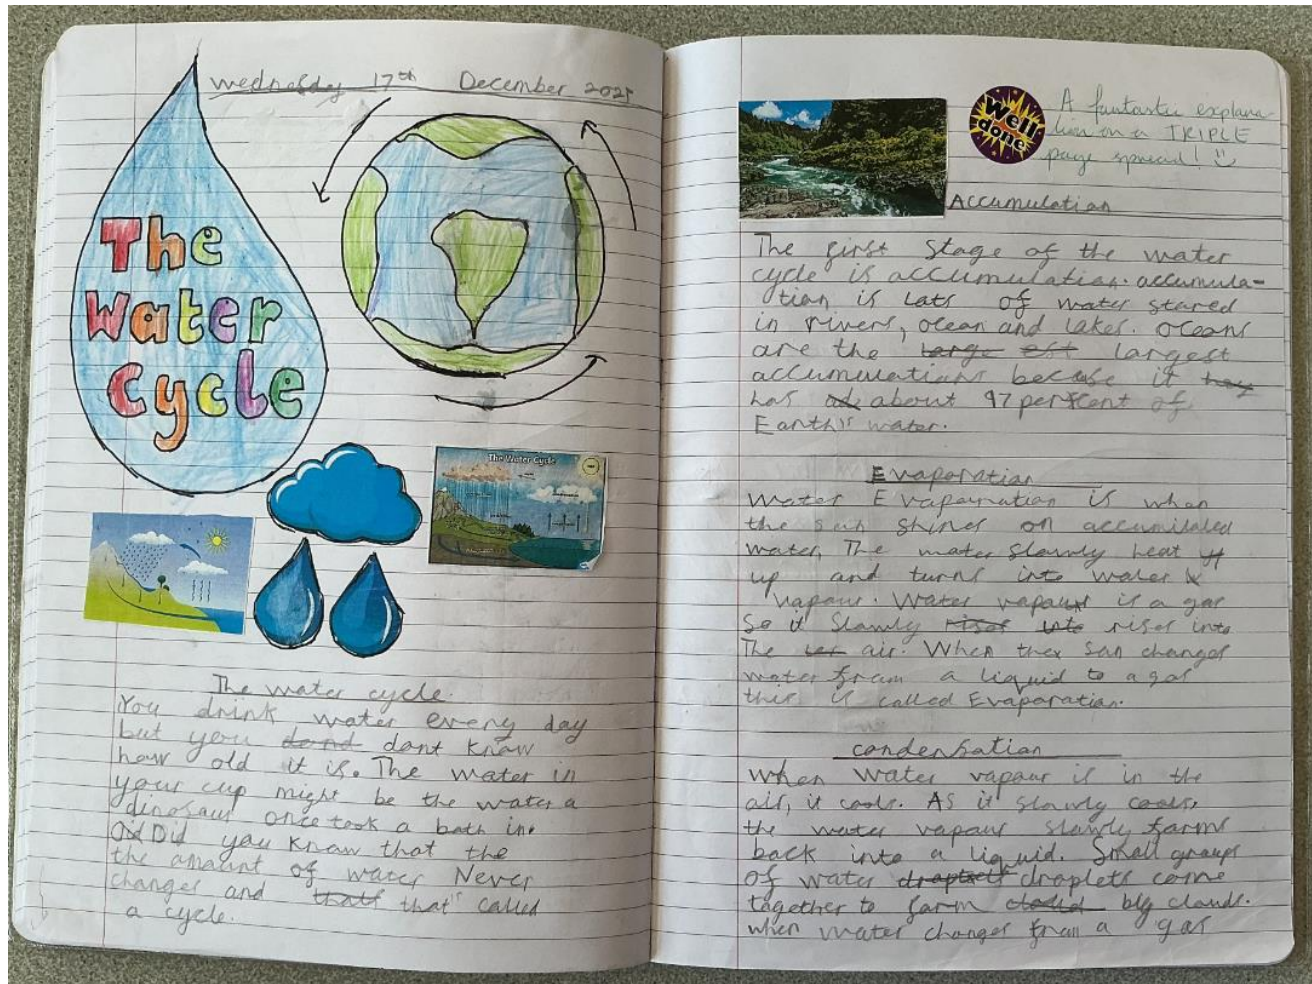 Wednesday 17th December 2025
The
Water
Cycle
The Water Cycle
The water cycle.
You drink water every day
but you dond dont know
how old it is. The water in
your cup might be the water a
dinosaur once took a bath in.
Did Did you know that the
the amount of water Never
changes and thatt that's called
a cycle.
well
done
A fantastic explana
tion on a TRIPLE
page spread!
Accumulation
The first stage of the water
cycle is accumulation. accumula-
tion is lots of water stored
in rivers, ocean and lakes. oceans
are the large est largest
accumulations because it hay
has about 97 percent of
Earth's water.
Evaporation
Water Evapouration is when
the sun shines on accumilated
water, The water slowly heat
up and turns into water
vapour. Water vapour is a gas
So it slowly rises into rises into
The air. When the sun changes
water from a liquid to a gas
this is called Evaporation.
condensation
When water vapour is in the
air, it cools. As it slowly cools,
the water vapour slowly forms
back into a liquid. Small groups
of water droplets come
together to form big clouds.
when water changes from a gas